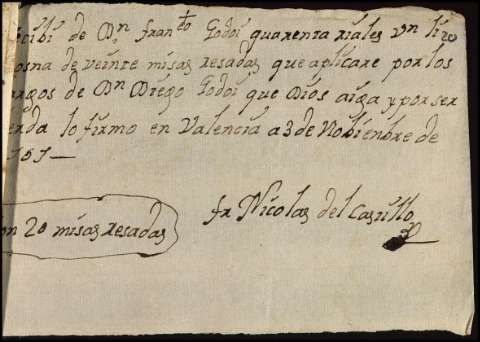 ecibi de Dn franco Godoi quarenta rriales Vn li
osna de veinte misas resadas que aplicare por los
argos de Dn Diego Godoi que Dios aiga y por ser
erda lo firmo en Valencia a 3 de Nobienbre de
751
on 20 misas resadas
fr Nicolas del Castillo